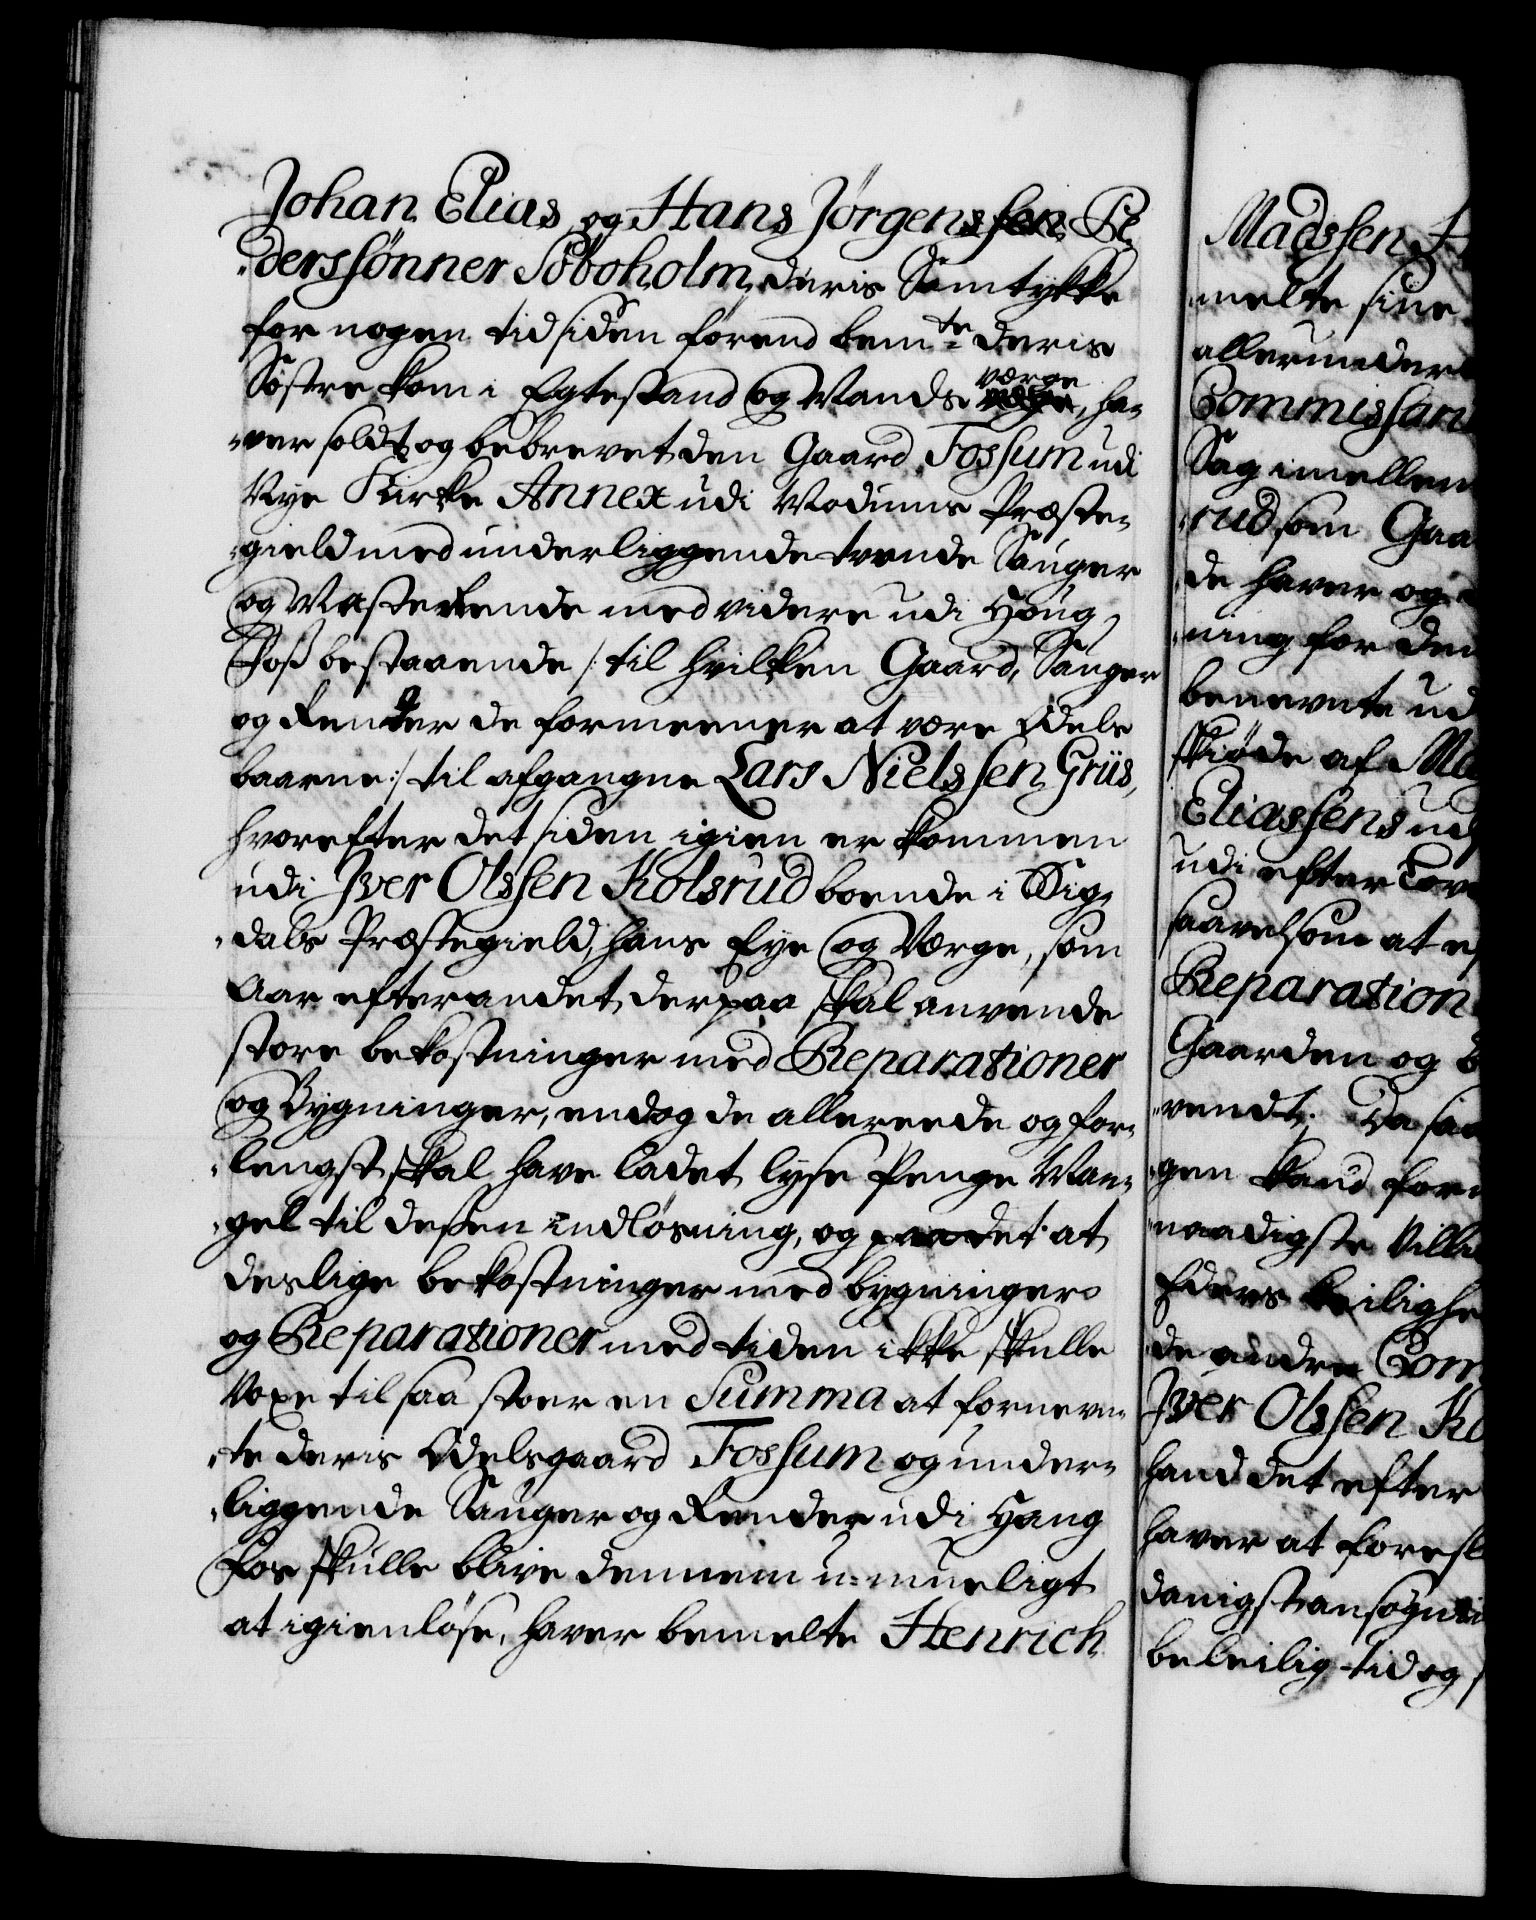 Johan Elias og Hans Jørgen Pe
derssønner Søboholm, deris Samtykke
for nogen tid siden forend bemte deris
Søstre kom i Egtestand og Mands værge, ha-
ver soldt og bebrevet den Gaard Fossum udi
Nye Kirke Annex udi Modums Præste-
gield med underliggende tvende Sauger
og Master med videre udi Houg
Foss bestaaende /: til hvilken Gaard, Sauger
og Render de formeener at være Odels
baarne :/ til afgangne Lars Nielssen Grüs,
hvorefter det siden igien er kommen
udi Iver Olssen Kolsrud boende i Sig-
dals Præstegield, hans Eye og Værge, som
Aar efter andet derpaa skal anvende
store bekostninger med Reparationer
og Bygninger, endog de allereede og for-
lengst skal have ladet lyse Penge Man-
gel til dessen indløsning, og paa det at
deslige bekostninger med bygninger
og Reparationer med tiden ikke skulle
Voxe til saa stoer en Summa at forneven-
te deris Odelsgaard Fossum og under-
liggende Sauger og Render udi Haug
Fos skulle blive dennem u-mueligt
at igienløse, haver bemelte Henrich
Madssen
melte sine
allerunder
Commissari
Sag imellem
rud som Gaa
de haver og
ning for den
benevnte ud
skiøde af
Eliassens
udi efter
saavelsom at
Reparation
Gaarden og
vendt. Da saa
gen kand for
naadigste Villi
Eders leilighe
de andre Com
Iver Olssen Ko
hand det efter
haver at foresl
danigst ansøgni
beleilig tid og